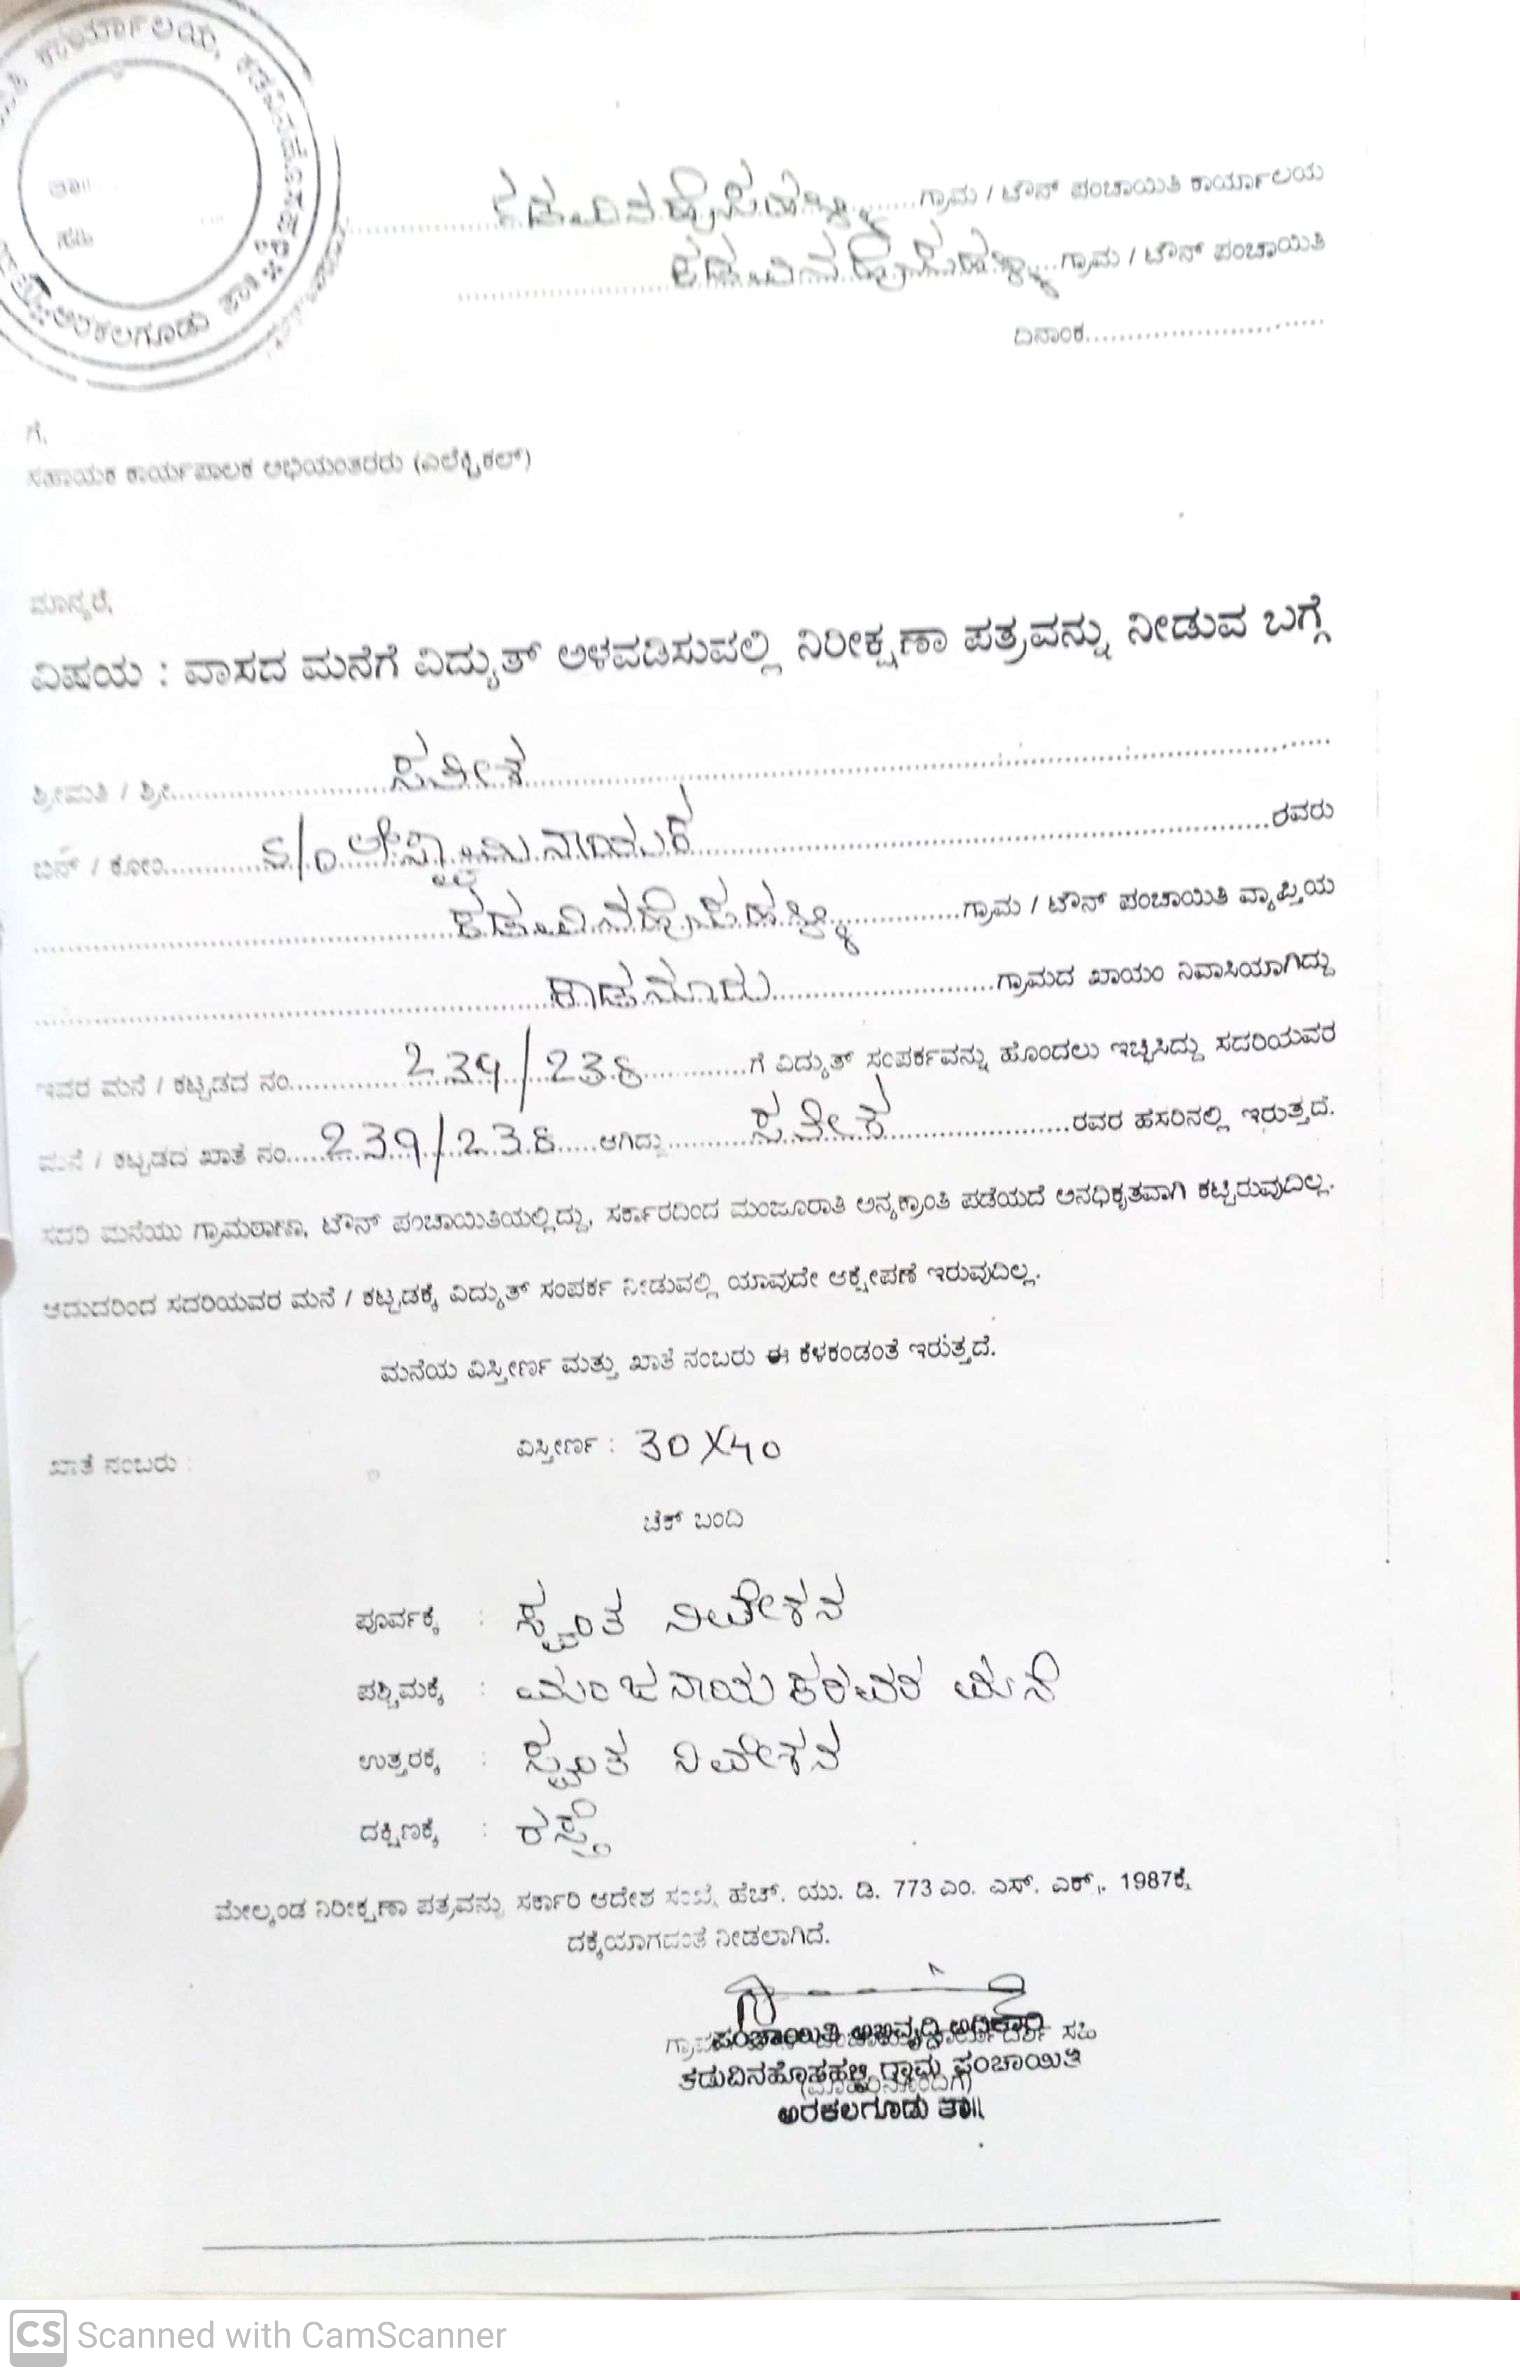 ಕಾರ್ಯಾಲಯ, ಕಡುವಿನಹೊಸಹಳ್ಳಿ
ಅರಕಲಗೂಡು
ಕಡುವಿನಹೊಸಹಳ್ಳಿ ಗ್ರಾಮ / ಟೌನ್ ಪಂಚಾಯಿತಿ ಕಾರ್ಯಾಲಯ
ಕಡುವಿನಹೊಸಹಳ್ಳಿ ಗ್ರಾಮ / ಟೌನ್ ಪಂಚಾಯಿತಿ
ದಿನಾಂಕ
ಗೆ,
ಸಹಾಯಕ ಕಾರ್ಯಪಾಲಕ ಅಭಿಯಂತರರು (ಎಲೆಕ್ಟ್ರಿಕಲ್)
ಮಾನ್ಯರೆ,
ವಿಷಯ : ವಾಸದ ಮನೆಗೆ ವಿದ್ಯುತ್ ಅಳವಡಿಸುವಲ್ಲಿ ನಿರೀಕ್ಷಣಾ ಪತ್ರವನ್ನು ನೀಡುವ ಬಗ್ಗೆ
ಶ್ರೀಮತಿ / ಶ್ರೀ ಸತೀಶ
ಬಿನ್ / ಕೋಂ S/o ನಾಯಕ ರವರು
ಕಡುವಿನಹೊಸಹಳ್ಳಿ ಗ್ರಾಮ / ಟೌನ್ ಪಂಚಾಯಿತಿ ವ್ಯಾಪ್ತಿಯ
ಕಾಡನೂರು ಗ್ರಾಮದ ಖಾಯಂ ನಿವಾಸಿಯಾಗಿದ್ದು
ಇವರ ಮನೆ / ಕಟ್ಟಡದ ನಂ. 239/238 ಗೆ ವಿದ್ಯುತ್ ಸಂಪರ್ಕವನ್ನು ಹೊಂದಲು ಇಚ್ಛಿಸಿದ್ದು ಸದರಿಯವರ
ಮನೆ / ಕಟ್ಟಡದ ಖಾತೆ ನಂ. 239/238 ಆಗಿದ್ದು ಸತೀಶ ರವರ ಹಸರಿನಲ್ಲಿ ಇರುತ್ತದೆ.
ಸದರಿ ಮನೆಯು ಗ್ರಾಮಠಾಣಾ, ಟೌನ್ ಪಂಚಾಯಿತಿಯಲ್ಲಿದ್ದು, ಸರ್ಕಾರದಿಂದ ಮಂಜೂರಾತಿ ಅನ್ಯಕ್ರಾಂತಿ ಪಡೆಯದೆ ಅನಧಿಕೃತವಾಗಿ ಕಟ್ಟಿರುವುದಿಲ್ಲ.
ಆದುದರಿಂದ ಸದರಿಯವರ ಮನೆ / ಕಟ್ಟಡಕ್ಕೆ ವಿದ್ಯುತ್ ಸಂಪರ್ಕ ನೀಡುವಲ್ಲಿ ಯಾವುದೇ ಆಕ್ಷೇಪಣೆ ಇರುವುದಿಲ್ಲ.
ಮನೆಯ ವಿಸ್ತೀರ್ಣ ಮತ್ತು ಖಾತೆ ನಂಬರು ಈ ಕೆಳಕಂಡಂತೆ ಇರುತ್ತದೆ.
ಖಾತೆ ನಂಬರು : ವಿಸ್ತೀರ್ಣ : 30X40
ಚೆಕ್ ಬಂದಿ
ಪೂರ್ವಕ್ಕೆ : ಸ್ವಂತ ನಿವೇಶನ
ಪಶ್ಚಿಮಕ್ಕೆ : ಮಂಜನಾಯಕರವರ ಮನೆ
ಉತ್ತರಕ್ಕೆ : ಸ್ವಂತ ನಿವೇಶನ
ದಕ್ಷಿಣಕ್ಕೆ : ರಸ್ತೆ
ಮೇಲ್ಕಂಡ ನಿರೀಕ್ಷಣಾ ಪತ್ರವನ್ನು ಸರ್ಕಾರಿ ಆದೇಶ ಸಂಖ್ಯೆ ಹೆಚ್. ಯು. ಡಿ. 773 ಎಂ. ಎಸ್. ಎಕ್ಸ್. 1987ಕ್ಕೆ
ದಕ್ಕೆಯಾಗದಂತೆ ನೀಡಲಾಗಿದೆ.
ಪಂಚಾಯಿತಿ ಅಭಿವೃದ್ಧಿ ಅಧಿಕಾರಿ
ಕಡುವಿನಹೊಸಹಳ್ಳಿ ಗ್ರಾಮ ಪಂಚಾಯಿತಿ
ಅರಕಲಗೂಡು ತಾ||
CS Scanned with CamScanner